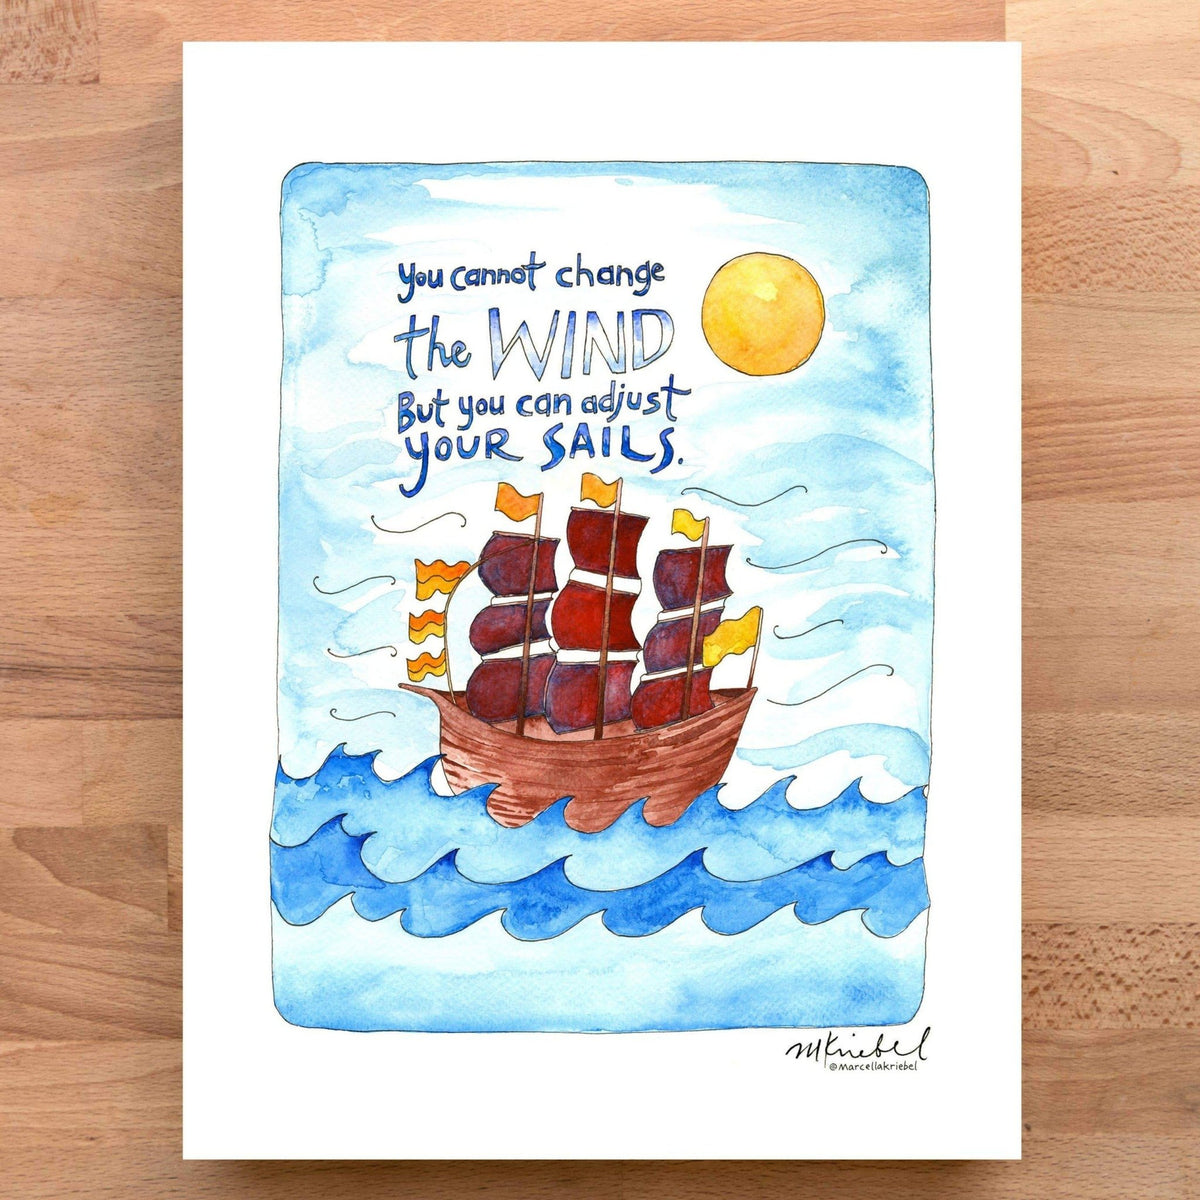 you cannot change
the WIND
But you can adjust
YOUR SAILS.
MKriebel
@marcellakriebel